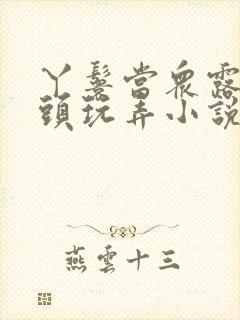 丫鬟當眾露
頭玩弄小說
燕雲十三